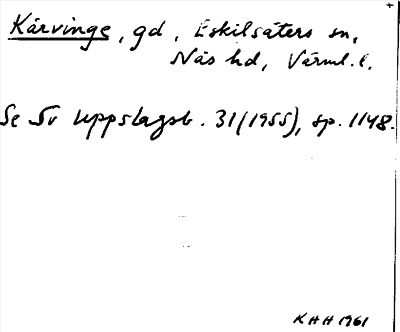 Kårvinge, gd, Eskilsäters sn,
Näs hd, Värml. l.
Se Sv Uppslagsb. 31 (1955), sp. 1148.
KHH 1961